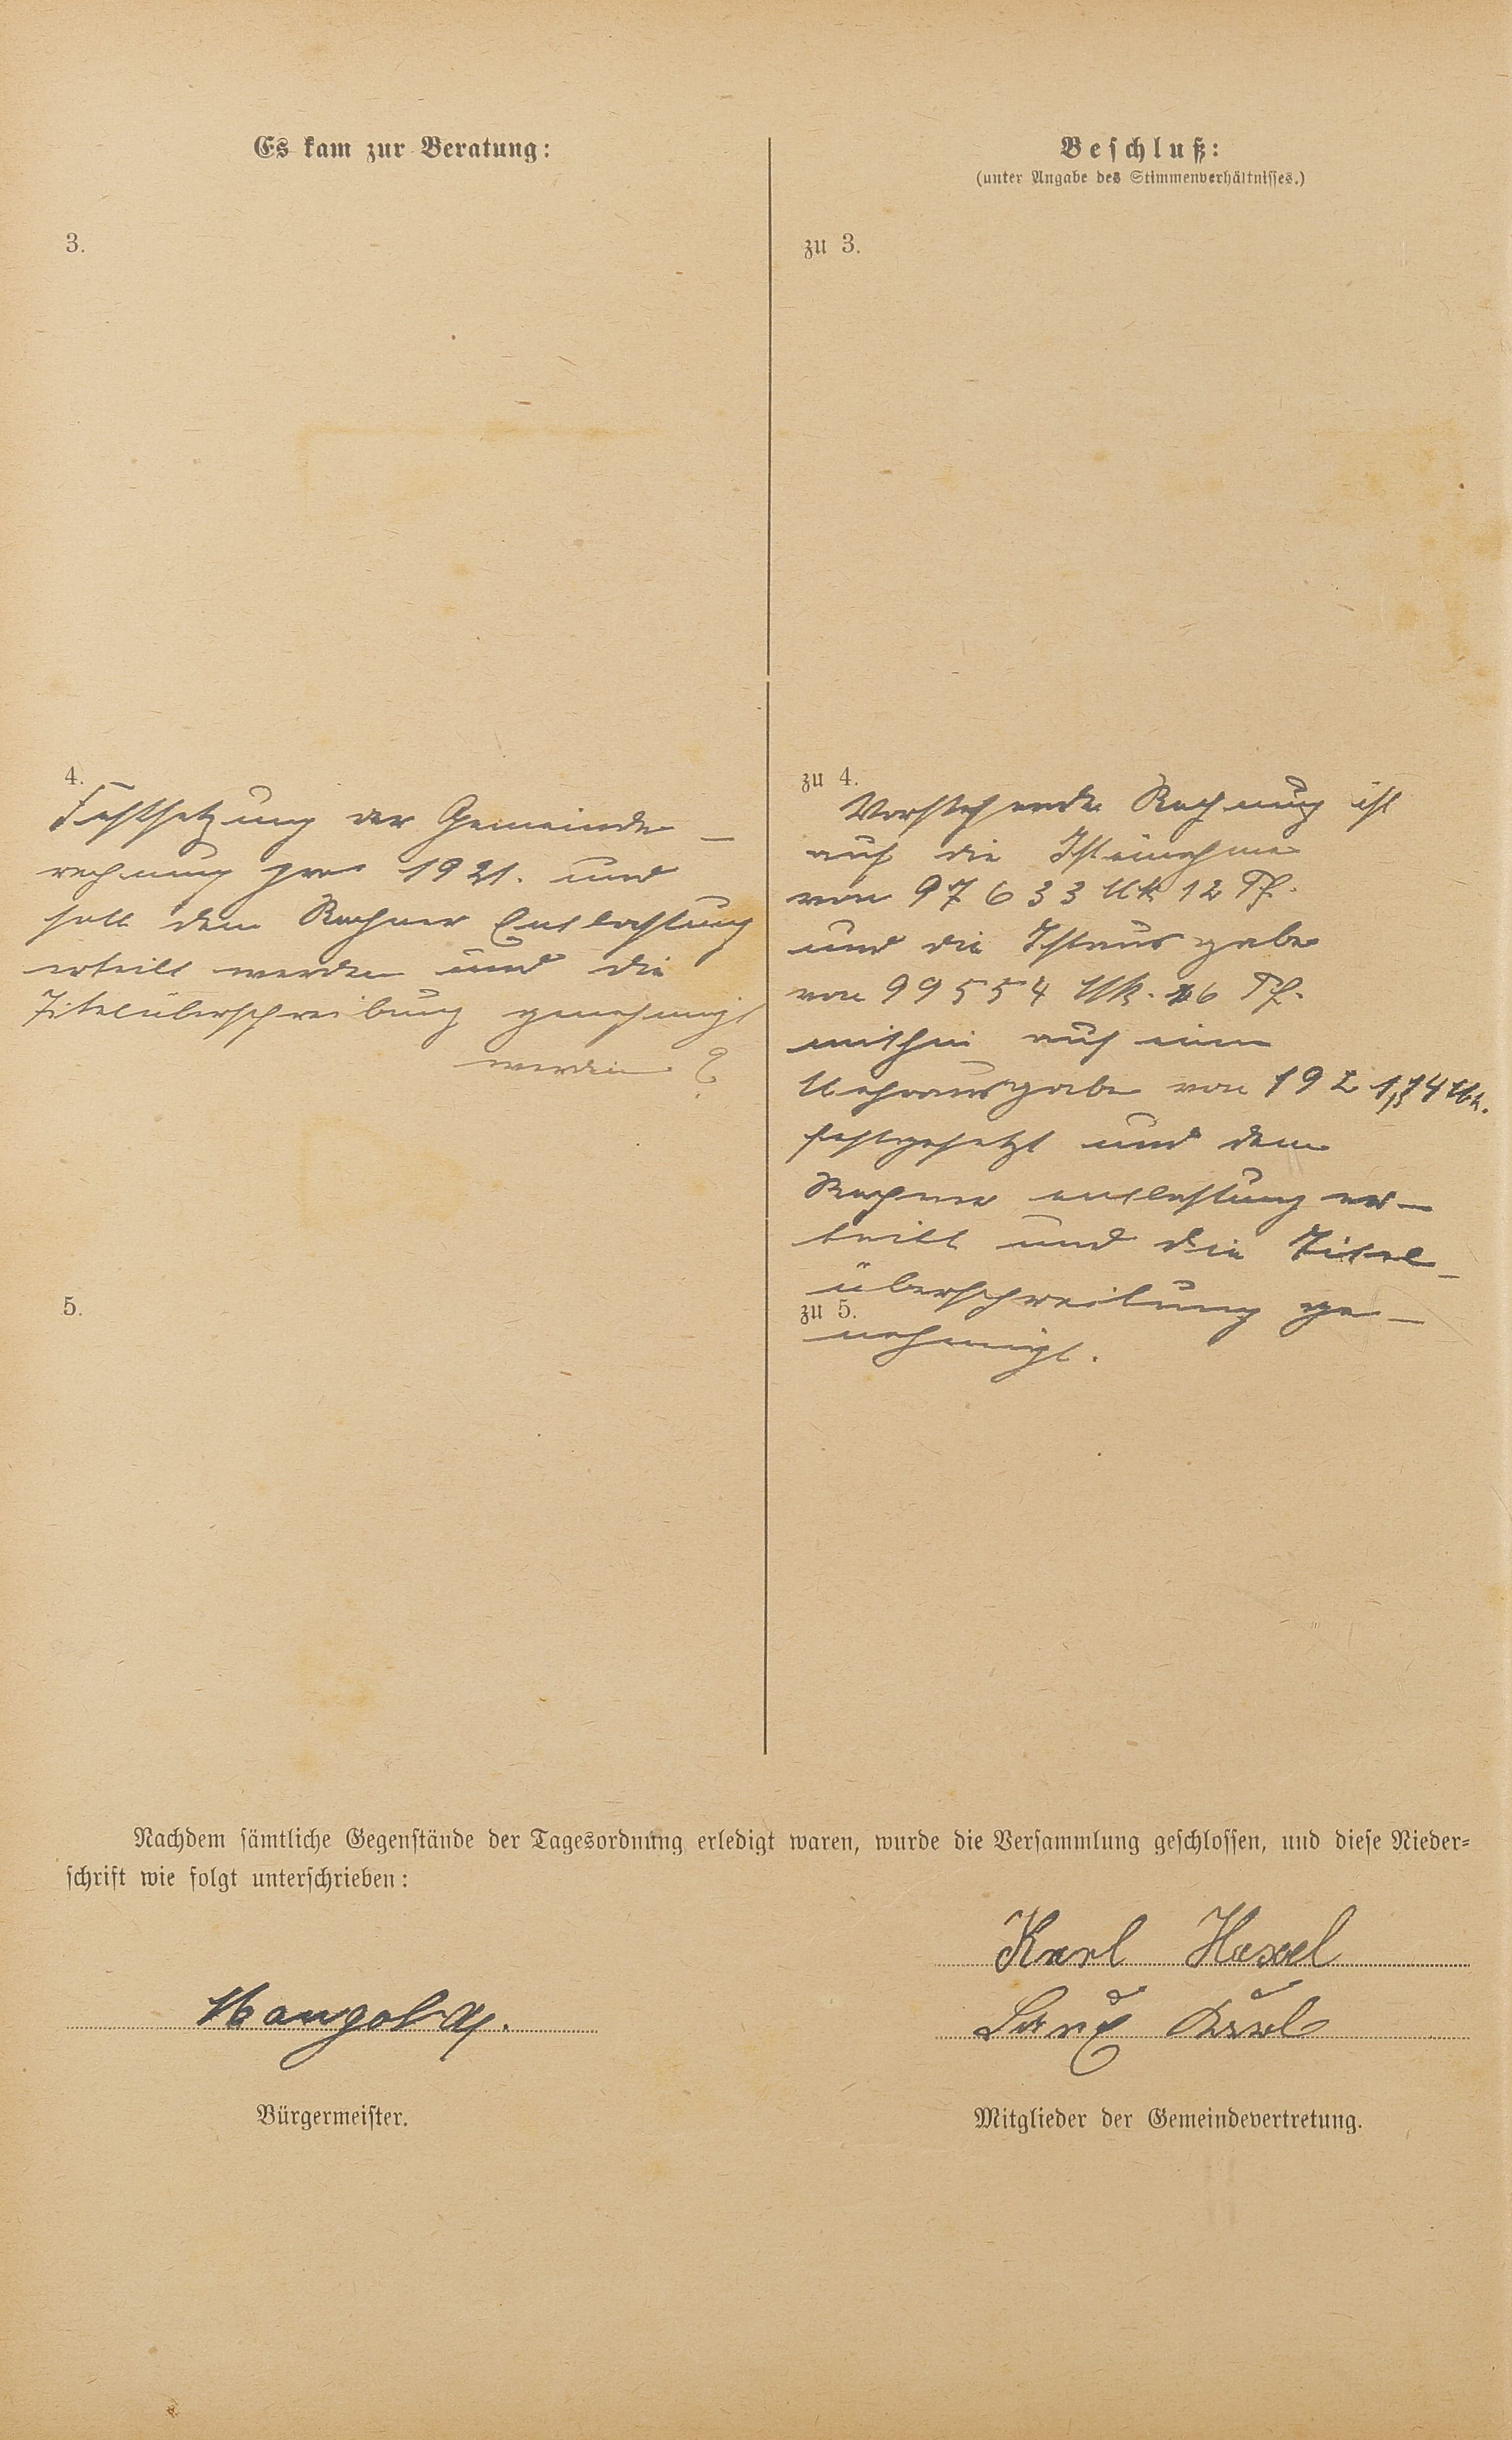 Es kam zur Beratung:
3.
4.
Festsetzung der Gemeinde-
rechnung pro 1921. und
soll dem Rechner Entlastung
erteilt werden und die
Titelüberschreibung genehmigt
werden?
5.
Beschluß:
(unter Angabe des Stimmenverhältnisses.)
zu 3.
zu 4.
Vorstehende Rechnung ist
auf die Isteinahme
von 97 633 Mk 12 Pf.
und die Istausgabe
von 99554 Mk. 26 Pf.
mithin auf eine
Mehrausgabe von 1921,14 Mk.
festgesetzt und dem
Rechner entlastung er-
teilt und die Titel-
überschreitung ge-
zu 5.
nehmigt.
Nachdem sämtliche Gegenstände der Tagesordnung erledigt waren, wurde die Versammlung geschlossen, und diese Nieder-
schrift wie folgt unterschrieben:
Karl Hexel
Karl
Bürgermeister.
Mitglieder der Gemeindevertretung.